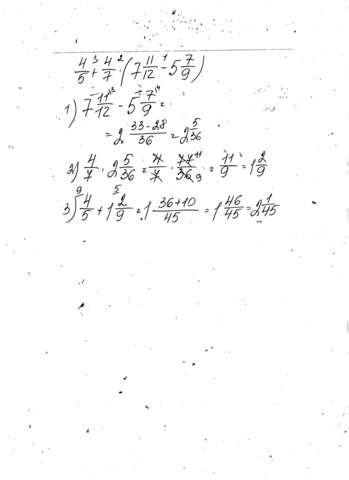 4/5 +³ 4/7 ·² (7 11/12 -¹ 5 7/9)
1) 7 11/12 - 5 7/9 =
= 2 (33-28)/36 = 2 5/36
2) 4/7 · 2 5/36 = 4/7 · 77/36 = 11/9 = 1 2/9
3) 4/5 + 1 2/9 = 1 (36+10)/45 = 1 46/45 = 2 1/45